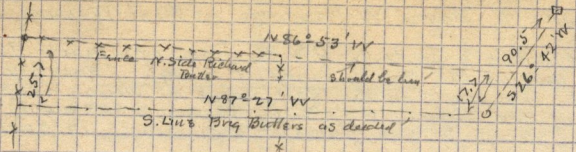 N 86°-53' W
Fence N. Side Richard
Butler
should be line
25.7
N 87°-27' W
S. Line Benj Butlers as deeded
17.7
90.5
S 26°-42' W